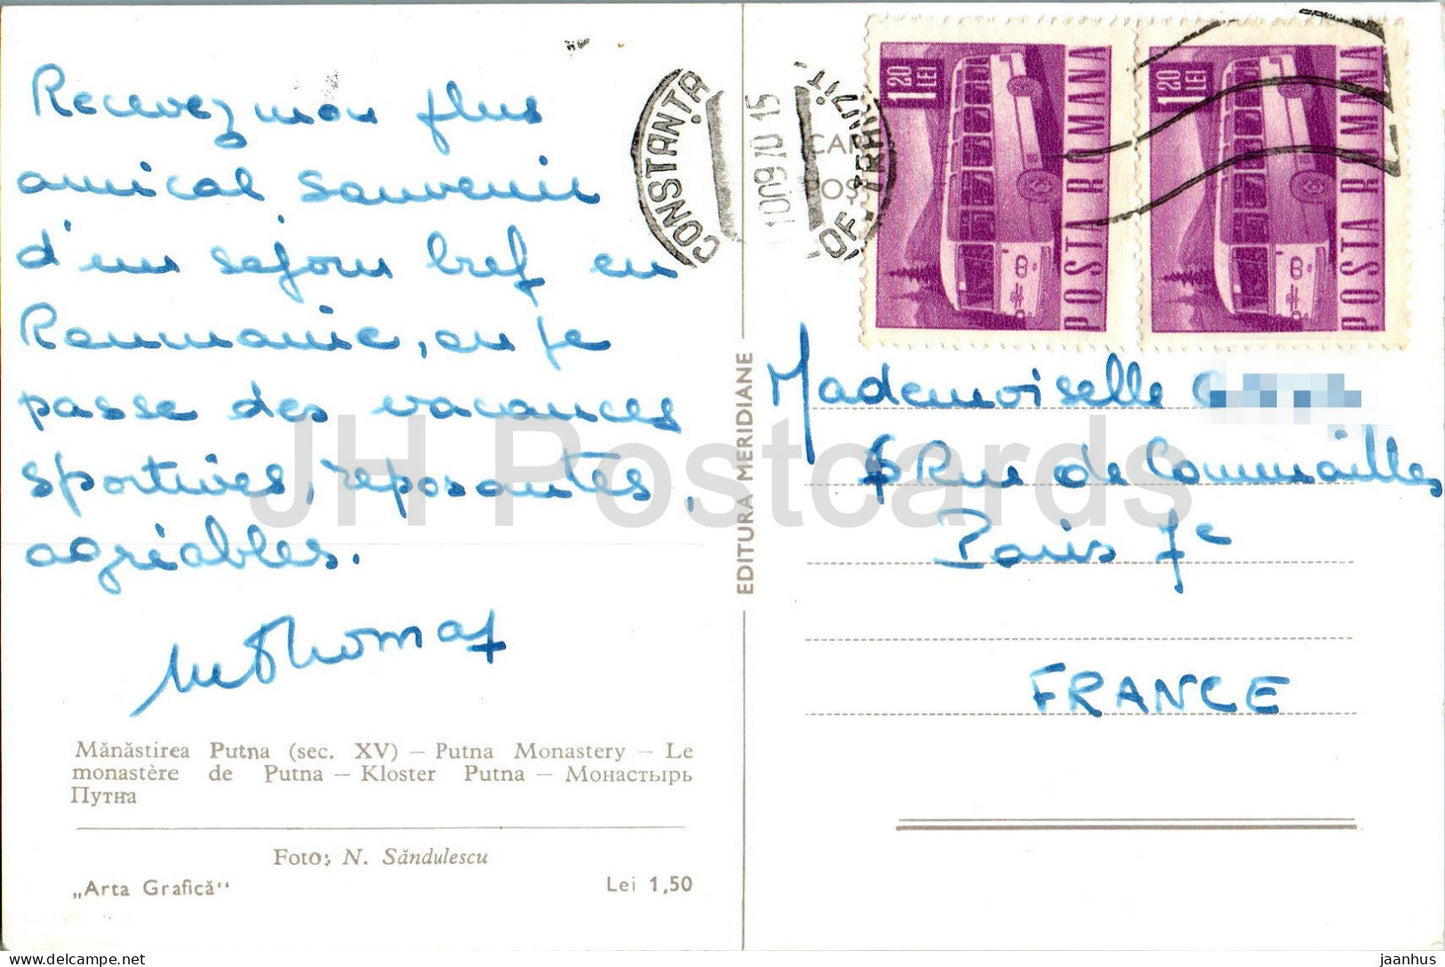 Recevez mon plus
amical souvenir
d'un séjour bref en
Roumanie, où je
passe des vacances
sportives, reposantes,
agréables.
Thomas
Mănăstirea Putna (sec. XV) – Putna Monastery – Le
monastère de Putna – Kloster Putna – Монастырь
Путна
Foto: N. Săndulescu
„Arta Grafică“
Lei 1,50
EDITURA MERIDIANE
CONSTANȚA
100970.15
OF. TRANZIT
1.20 LEI
POSTA ROMANA
1.20 LEI
POSTA ROMANA
Mademoiselle
Rue de Commailles
Paris 7e
FRANCE
JH Postcards
jaanhus